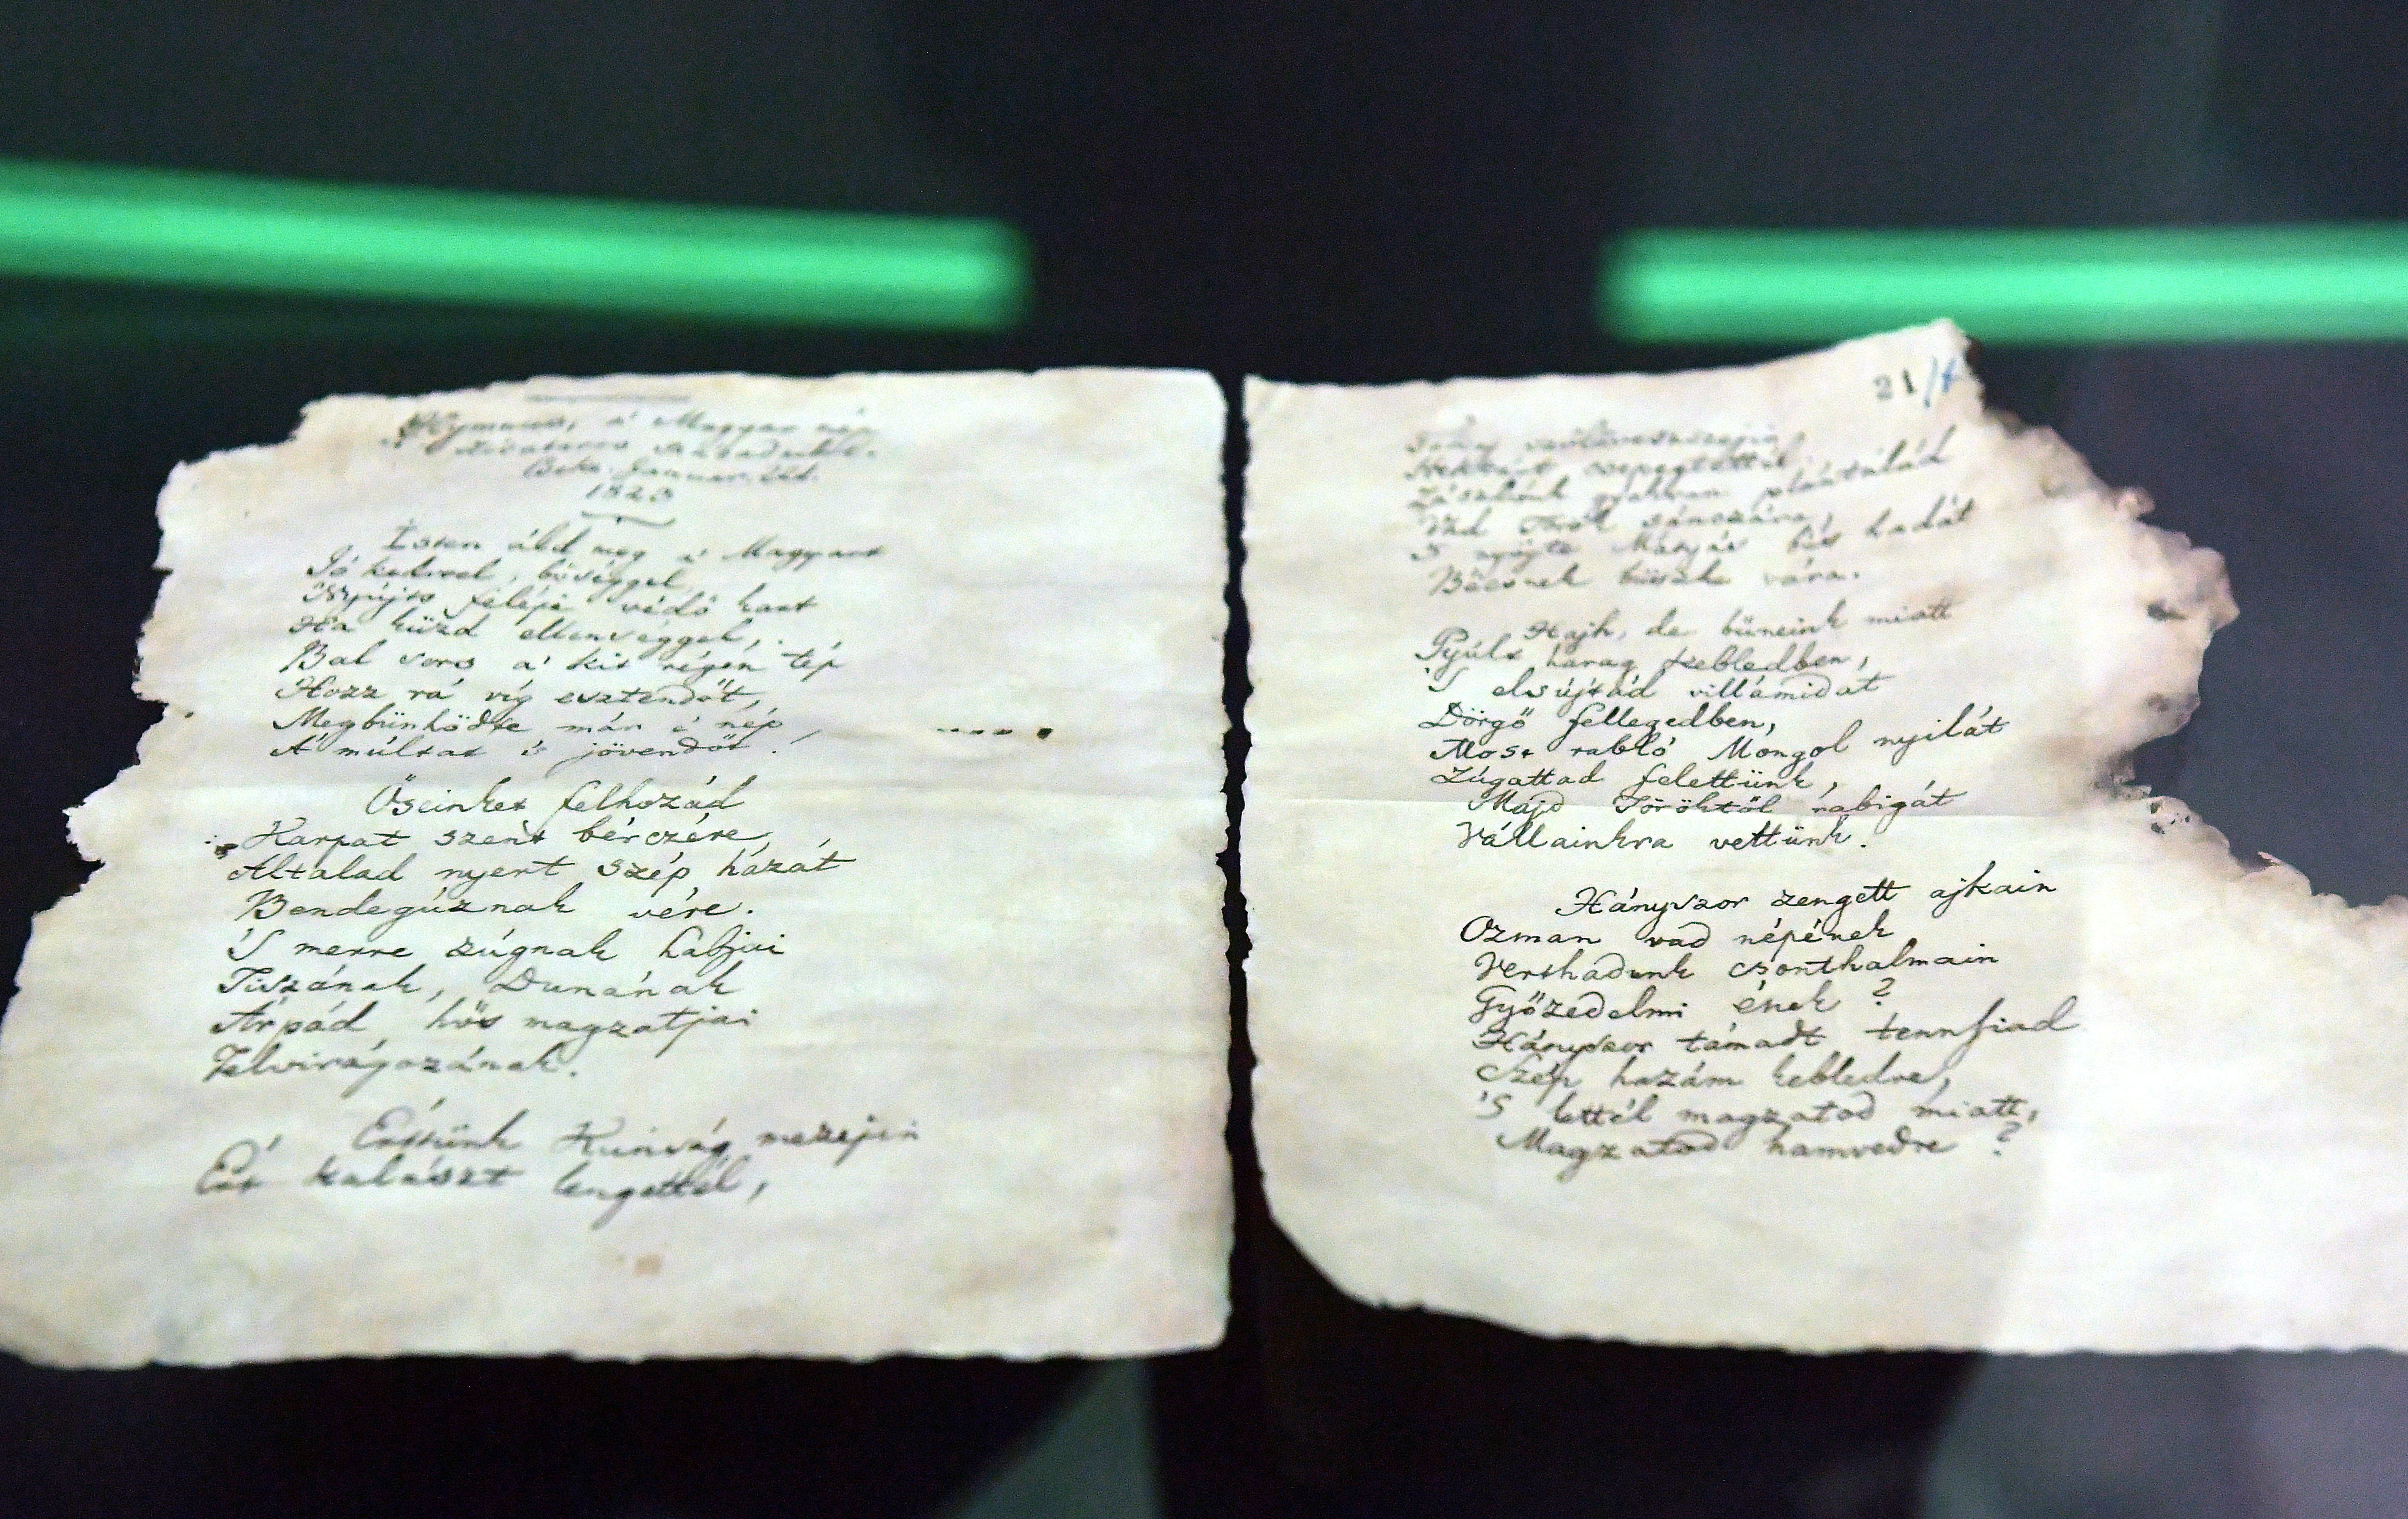 Hymnus, a' Magyar nép
zivataros századaiból.
Beke. Januar. 22d.
1823
Isten áld meg a' Magyart
Jó kedvvel, bőséggel
Nyújts feléje védő kart
Ha küzd ellenséggel,
Bal sors a' kit régen tép
Hozz rá víg esztendőt,
Megbűnhődte már e' nép
A' múltat 's jövendőt!
Őseinket felhozád
Karpat szent bérczére,
Altalad nyert szép hazát
Bendegúznak vére.
'S merre zúgnak habjai
Tiszának, Dunának
Árpád hős magzatjai
Felvirágozának.
Értünk Kunság mezejin
Ért kalászt lengettél,
21/
Tokaj szőlővesszein
Nektárt csepegtettél.
Zászlónk gyakran plántálád
Vad Török sánczára,
'S nyögte Mátyás bús hadát
Bécsnek büszke vára.
Hajh, de bűneink miatt
Gyúlt harag kebledben,
'S elsújtád villámidat
Dörgő fellegedben,
Most rabló Mongol nyilát
Zúgattad felettünk,
Majd Töröktől rabigát
Vállainkra vettünk.
Hányszor zengett ajkain
Ozman vad népének
Vert hadunk csonthalmain
Győzedelmi ének?
Hányszor támadt tennfiad
Szép hazám kebledre,
'S lettél magzatod miatt,
Magzatod hamvedre?